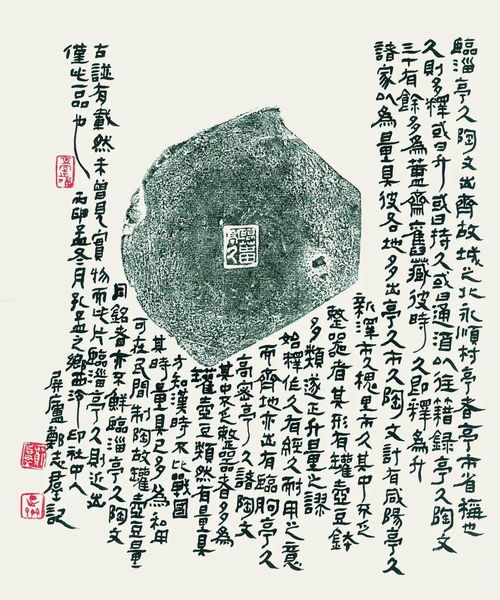 臨淄亭久陶文出齊故城之北永順村亭者亭市省稱也
久則多釋或曰升或曰持久或曰通酒以往籍錄亭久陶文
三十有餘多為簠齋舊藏彼時久即釋為升
諸家以為量具彼各地多出亭久市久陶文計有咸陽亭久
新澤市久槐里市久其中不乏
整器者其形有罐壺豆缽
多類遂正升量之謬
始釋作久有經久耐用之意
而齊地亦出有臨朐亭久
高密亭久諸陶文
其中不乏整器者多為
罐壺豆類然有量具
方知漢時不比戰國
其時量具已多為和用
可在民間制陶故罐壺豆量
同銘者亦不鮮臨淄亭久陶文
古謎有載然未曾見實物而此片臨淄亭久則近出
僅此一品也
丙申孟冬月孔孟之鄉西泠印社中人
屏廬鄭志群記